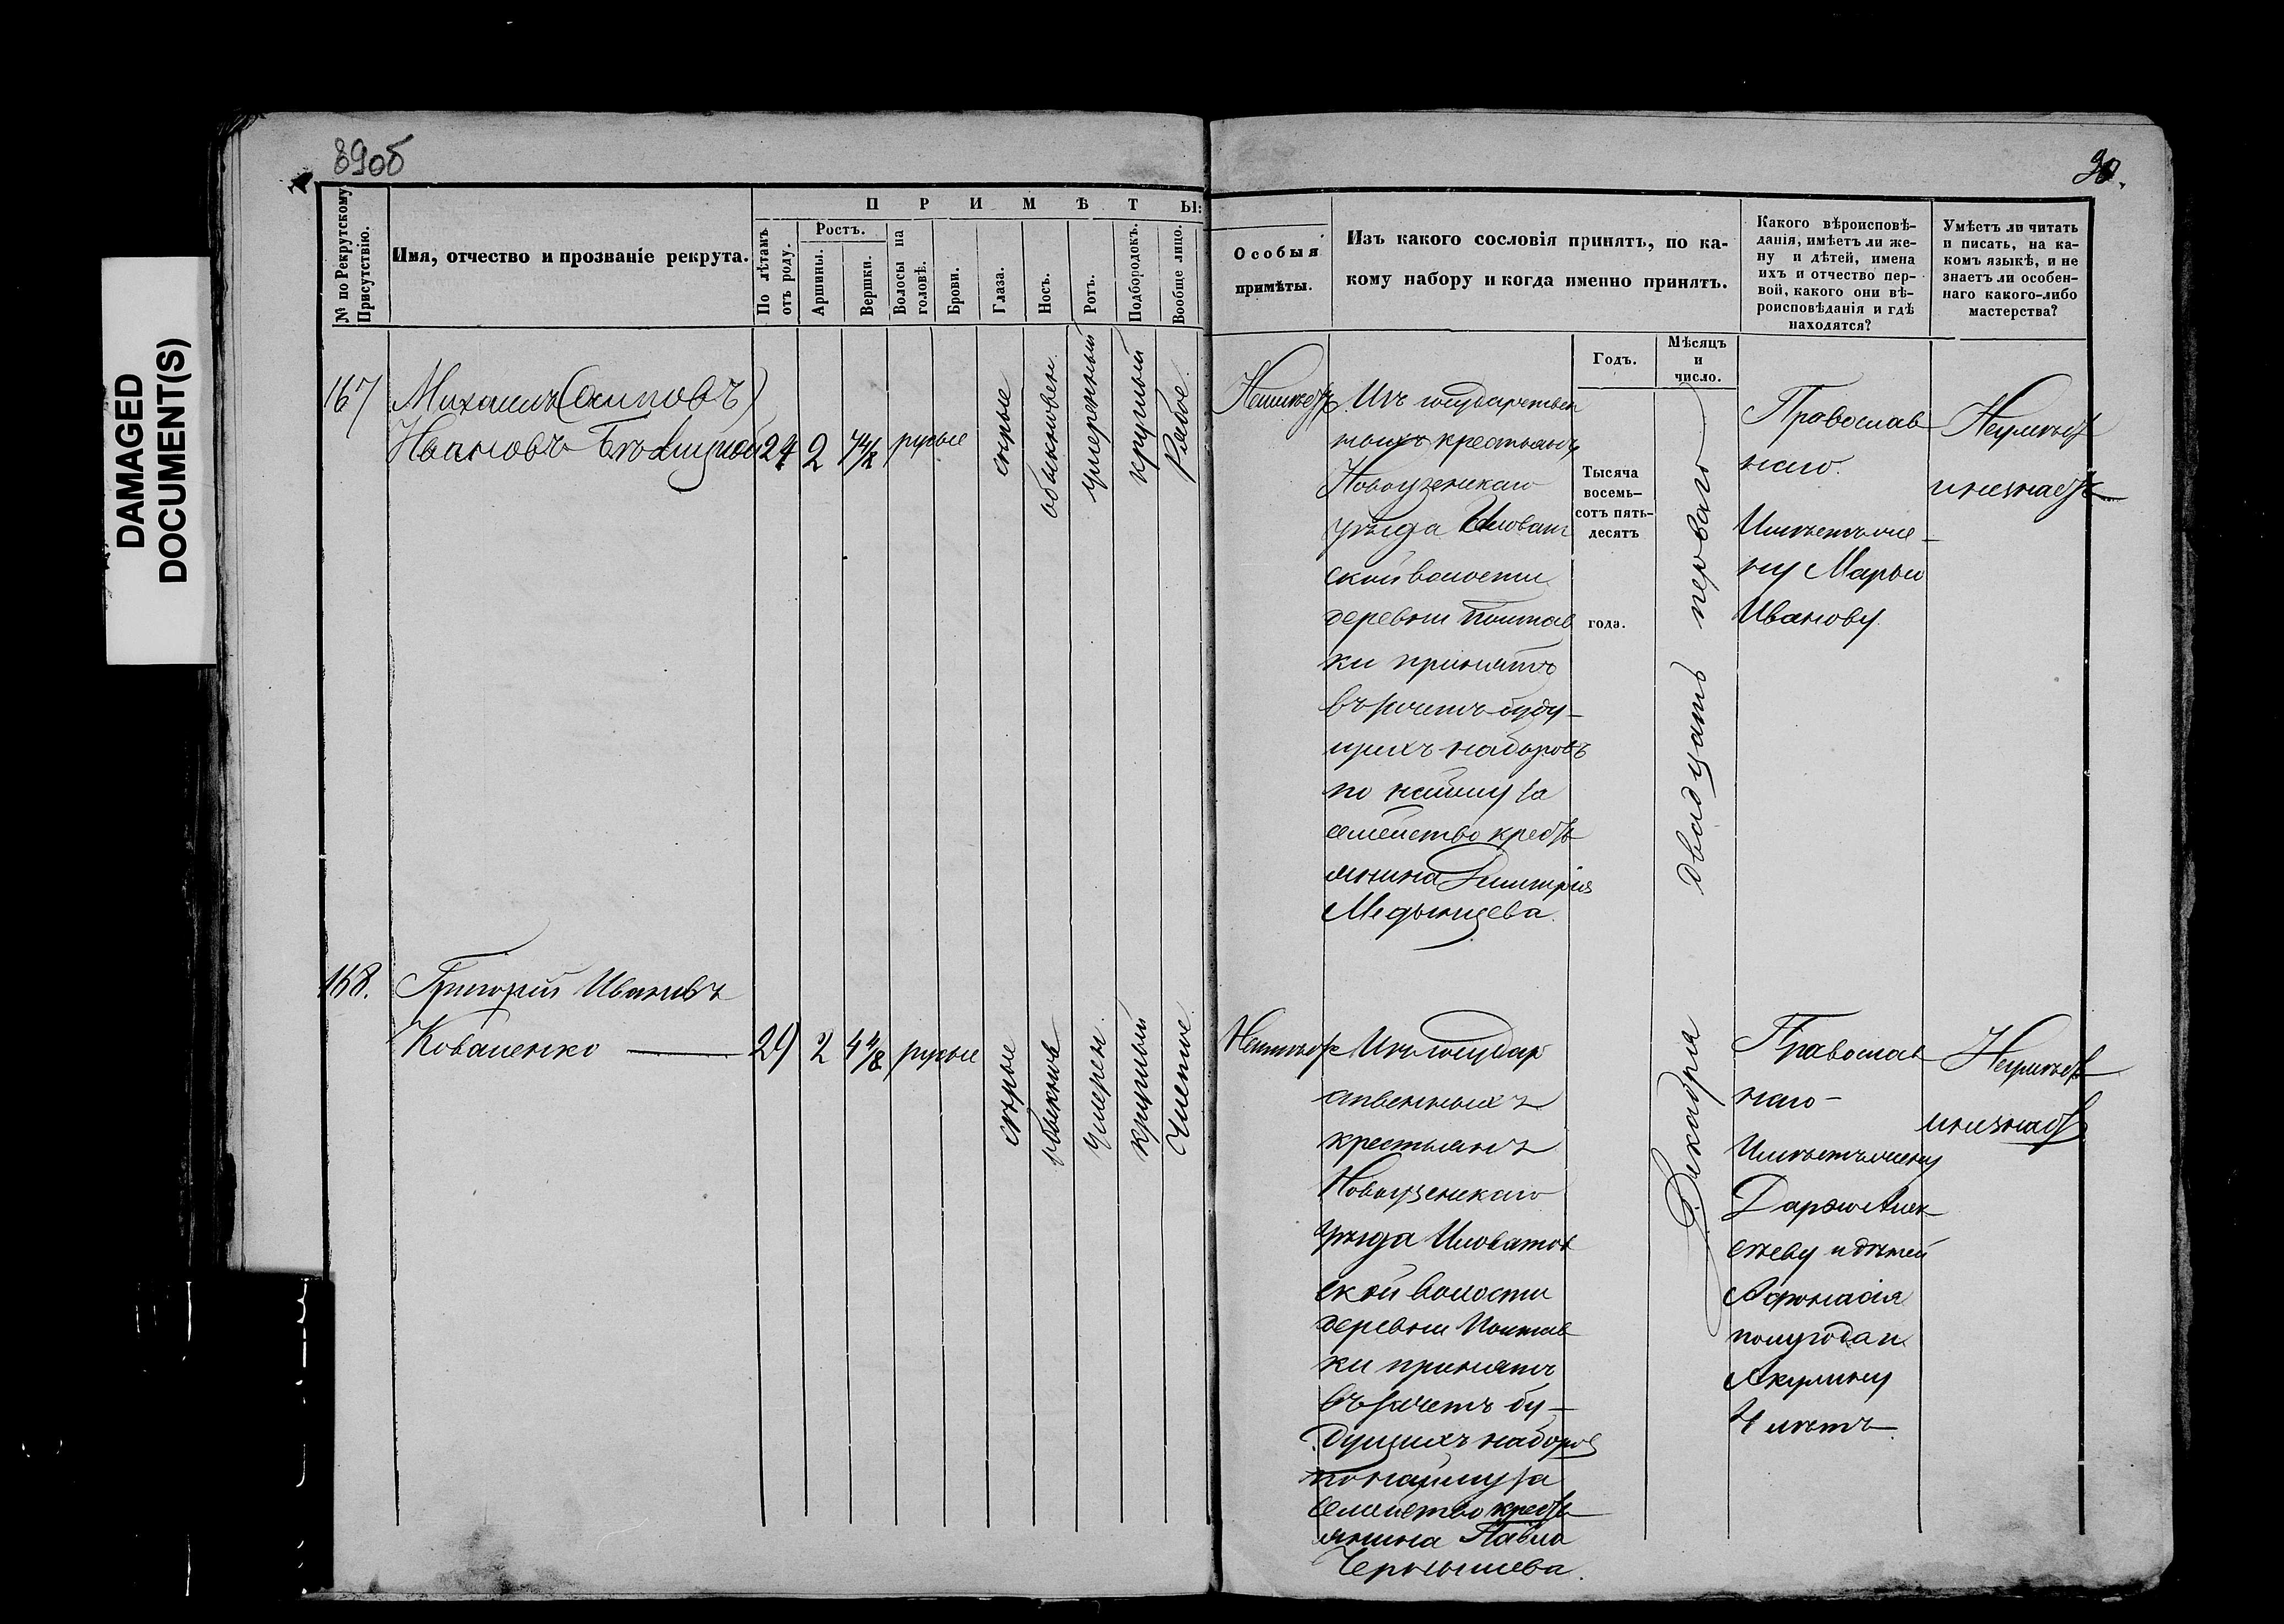 DAMAGED
DOCUMENT(S)
89об
90.
№ по Рекрутскому Присутствію.
Имя, отчество и прозваніе рекрута.
ПРИМѢТЫ:
По лѣтамъ отъ роду.
Ростъ.
Аршины.
Вершки.
Волосы на головѣ.
Брови.
Глаза.
Носъ.
Ротъ.
Подбородокъ.
Вообще лицо.
Особыя
примѣты.
Изъ какого сословія принятъ, по ка-
кому набору и когда именно принятъ.
Какого вѣроисповѣ-
данія, имѣетъ ли же-
ну и дѣтей, имена
ихъ и отчество пер-
вой, какого они вѣ-
роисповѣданія и гдѣ
находятся?
Умѣетъ ли читать
и писать, на ка-
комъ языкѣ, и не
знаетъ ли особен-
наго какого-либо
мастерства?
Годъ.
Мѣсяцъ
и
число.
Тысяча
восемь-
сотъ пять-
десятъ
года.
Декабря двадцать перваго
167
Михаилъ (Осиповъ)
Ивановъ
24 2 7 4/8 русые
сѣрые
обыкновен
умеренный
круглый
Рябое
Неимѣетъ
Изъ государствен
ныхъ крестьянъ
Новоузенскаго
уѣзда Иловат
ской волости
деревни Полтав
ки принятъ
въ зачетъ буду-
щихъ наборовъ
по найму за
семейство кресть
янина Димитрія
Медынцева.
Православ
наго.
Имѣетъ же-
ну Марью
Иванову.
Неумѣетъ
и незнаетъ
168.
Григорій Ивановъ
Коваленко
29 2 4 4/8 русые
сѣрые
обыкнов
Умерен.
круглый
Чистое
Неимѣетъ
Изъ государ
ственныхъ
крестьянъ
Новоузенскаго
уѣзда Иловатов
ской волости
деревни Полтав
ки принятъ
въ зачетъ бу-
дущихъ наборов
по найму за
семейство кресть
янина Павла
Чернышева.
Православ
наго-
Имѣетъ жену
Дарью Алек
сѣеву и дѣтей
Афонасія
полугода и
Акулину
4 лѣтъ
Неумѣетъ
и незнаетъ